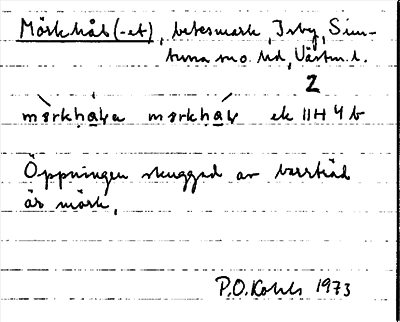 Mörkhål (-et), betesmark, Isby, Sim-
tuna sn o. hd, Västm. l.
2
mərkhɑ̀lɐ mərkhɑ́l ek 11H 4b
Öppningen skuggad av barrträd
är mörk.
P.O. Kohls 1973